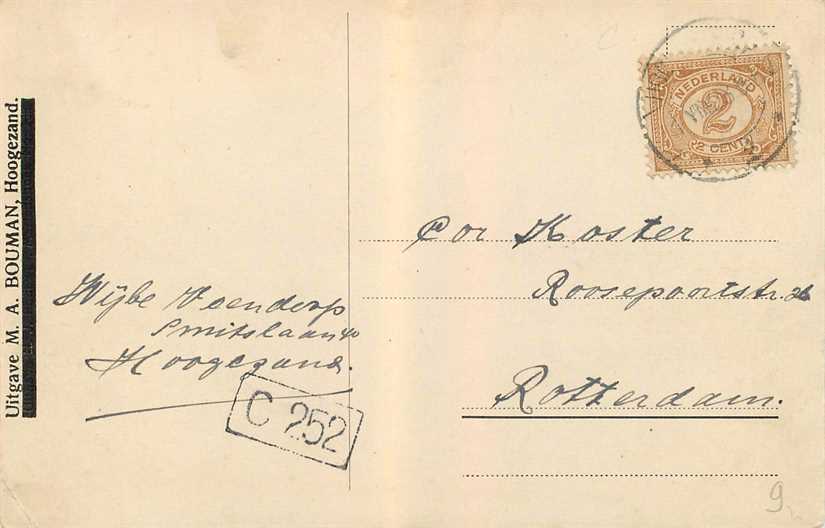 Uitgave M. A. BOUMAN, Hoogezand.
NEDERLAND
2
2 CENT
Cor Koster
Roosepoortstr. 26
Rotterdam.
Wijbe Veendorp
Smitslaan 40
Hoogezand.
C 252
9